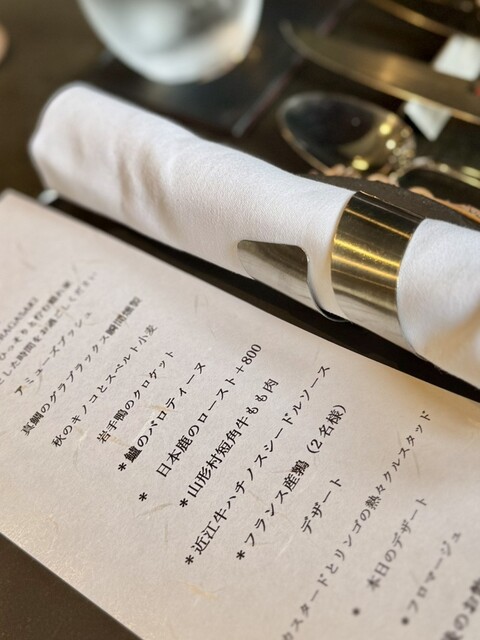 アミューズブッシュ
真鯛のグラブラックス瞬間燻製
秋のキノコとスペルト小麦
岩手鴨のクロケット
*鱸のバロティーヌ
* 日本鹿のロースト+800
*山形村短角牛もも肉
*近江牛ハチノスシードルソース
*フランス産鶉（2名様）
デザート
カスタードとリンゴの熱々クルスタッド
* 本日のデザート
*フロマージュ